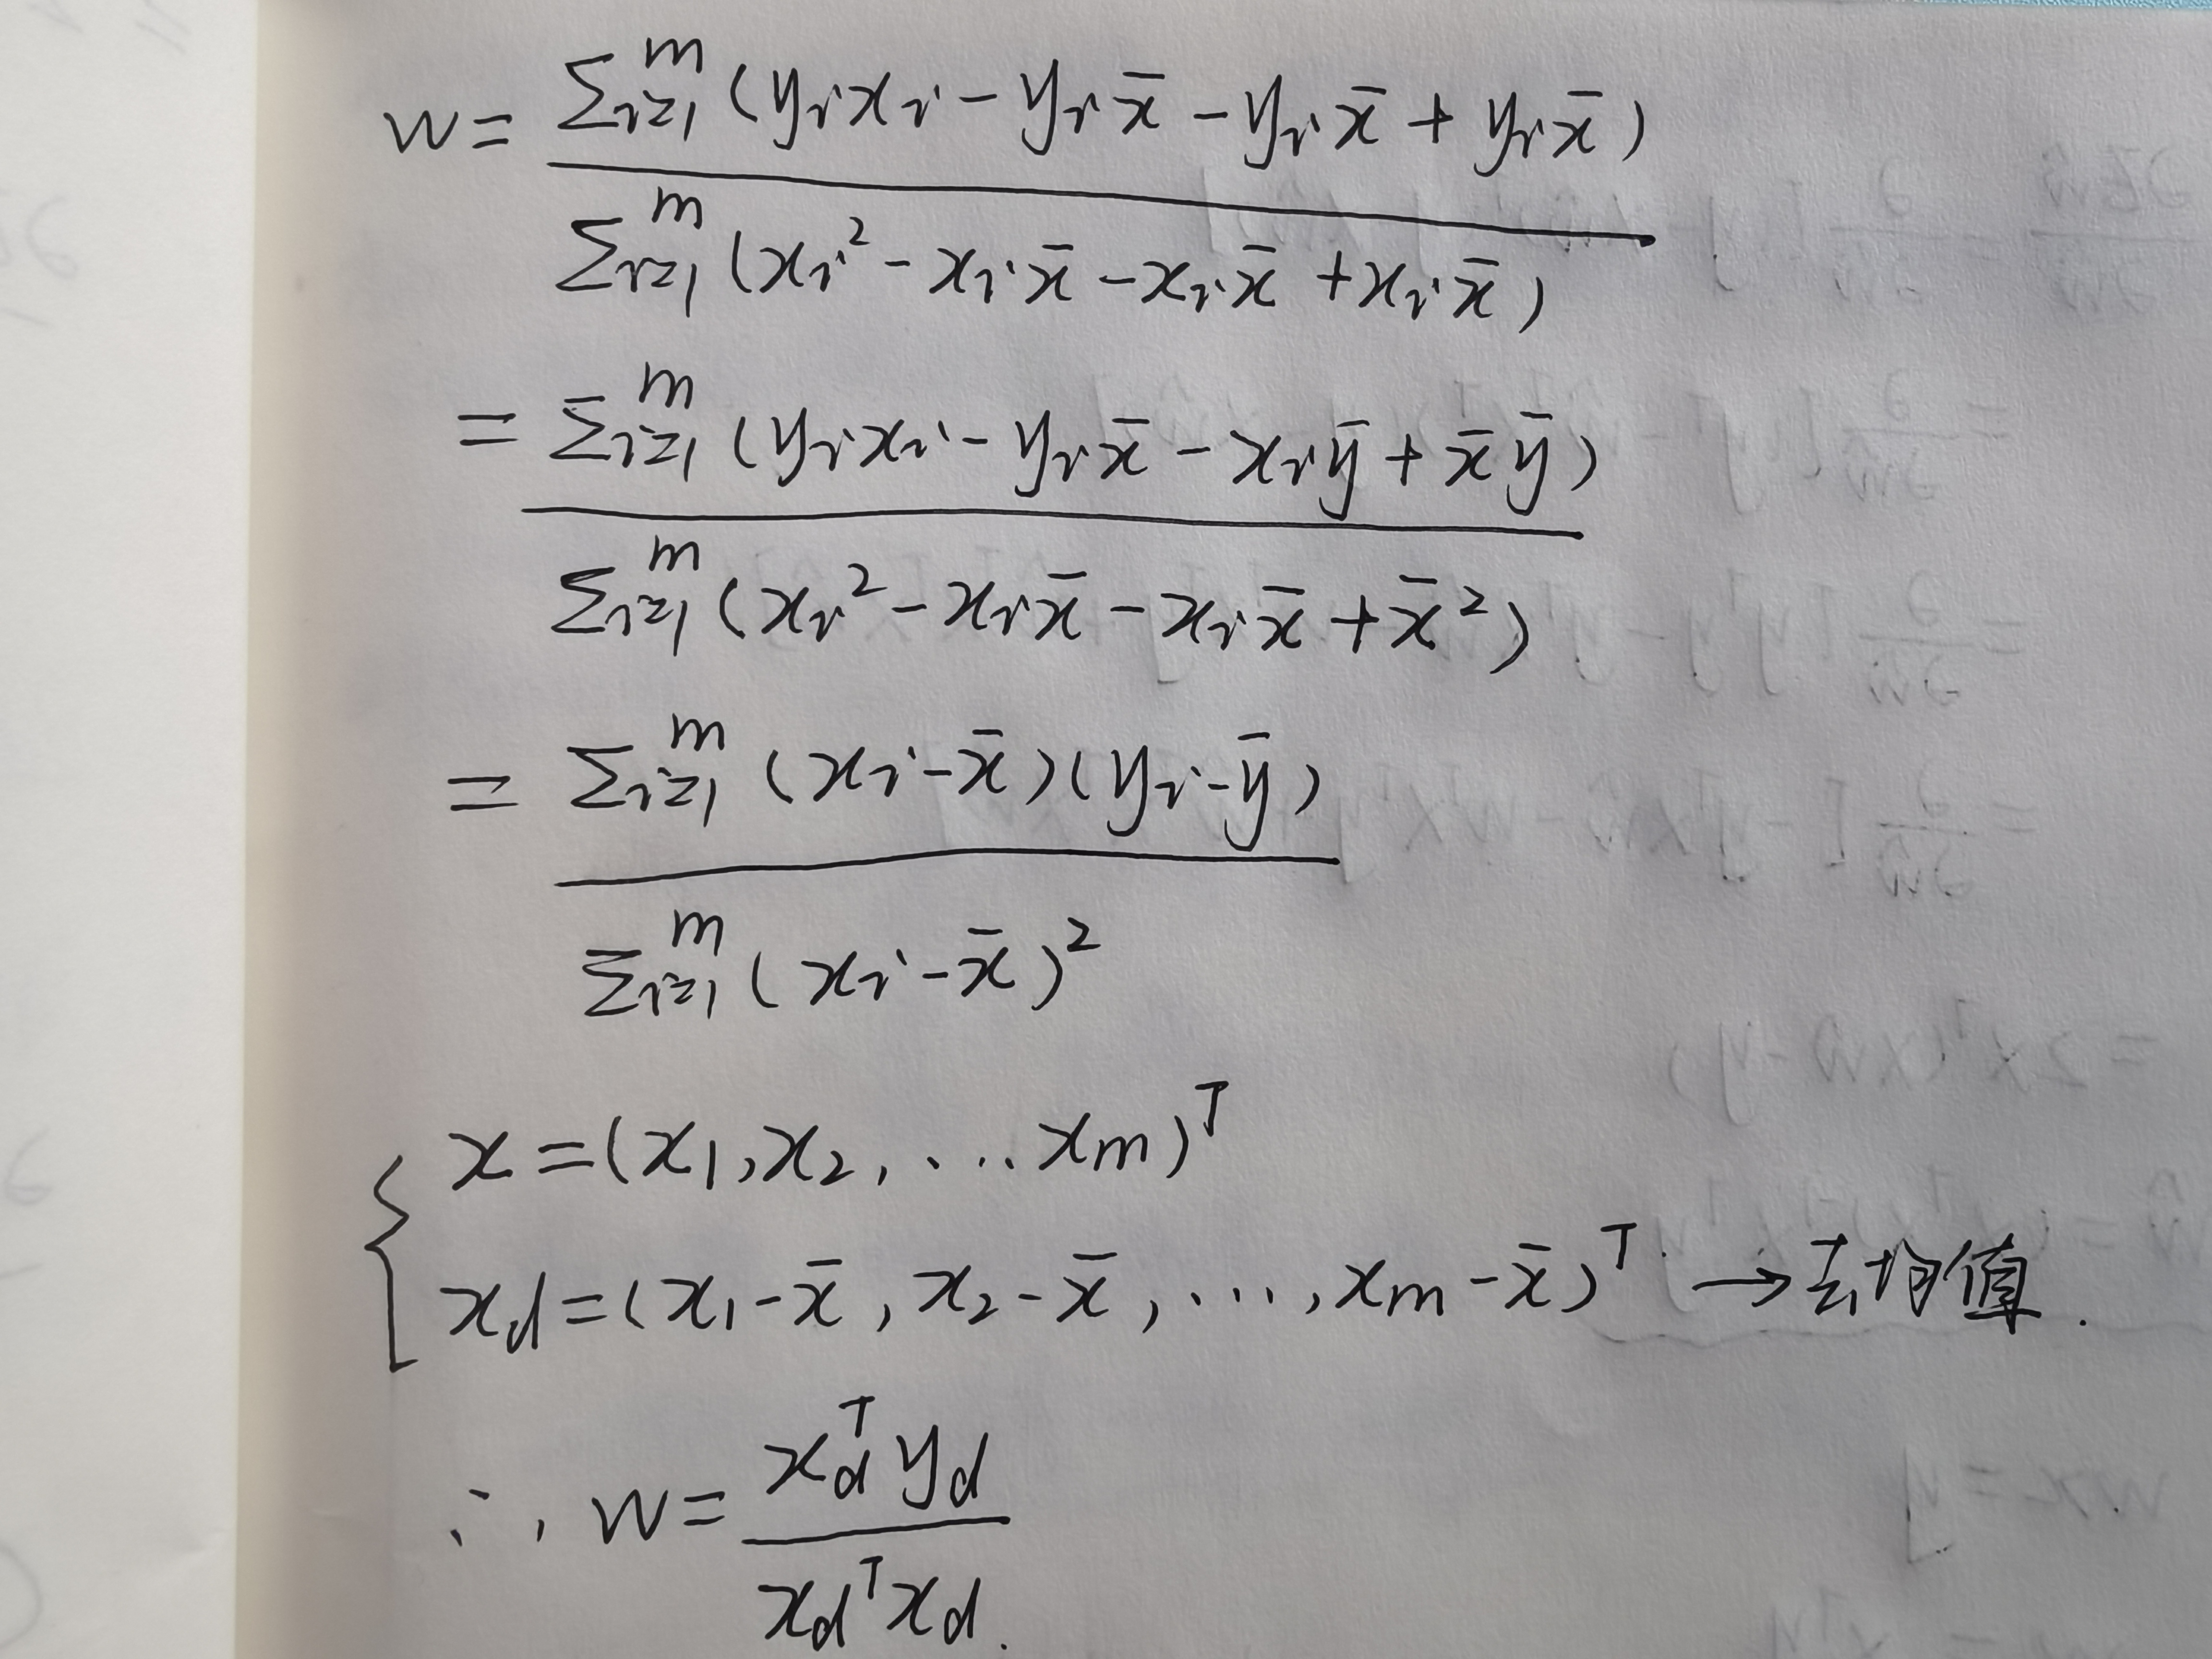 w = \frac{\sum_{i=1}^{m} (y_i x_i - y_i \bar{x} - y_i \bar{x} + y_i \bar{x})}{\sum_{i=1}^{m} (x_i^2 - x_i \bar{x} - x_i \bar{x} + x_i \bar{x})}
= \frac{\sum_{i=1}^{m} (y_i x_i - y_i \bar{x} - x_i \bar{y} + \bar{x} \bar{y})}{\sum_{i=1}^{m} (x_i^2 - x_i \bar{x} - x_i \bar{x} + \bar{x}^2)}
= \frac{\sum_{i=1}^{m} (x_i - \bar{x})(y_i - \bar{y})}{\sum_{i=1}^{m} (x_i - \bar{x})^2}
x = (x_1, x_2, ... x_m)^T
x_d = (x_1 - \bar{x}, x_2 - \bar{x}, ..., x_m - \bar{x})^T → 去均值.
∴, w = \frac{x_d^T y_d}{x_d^T x_d}.